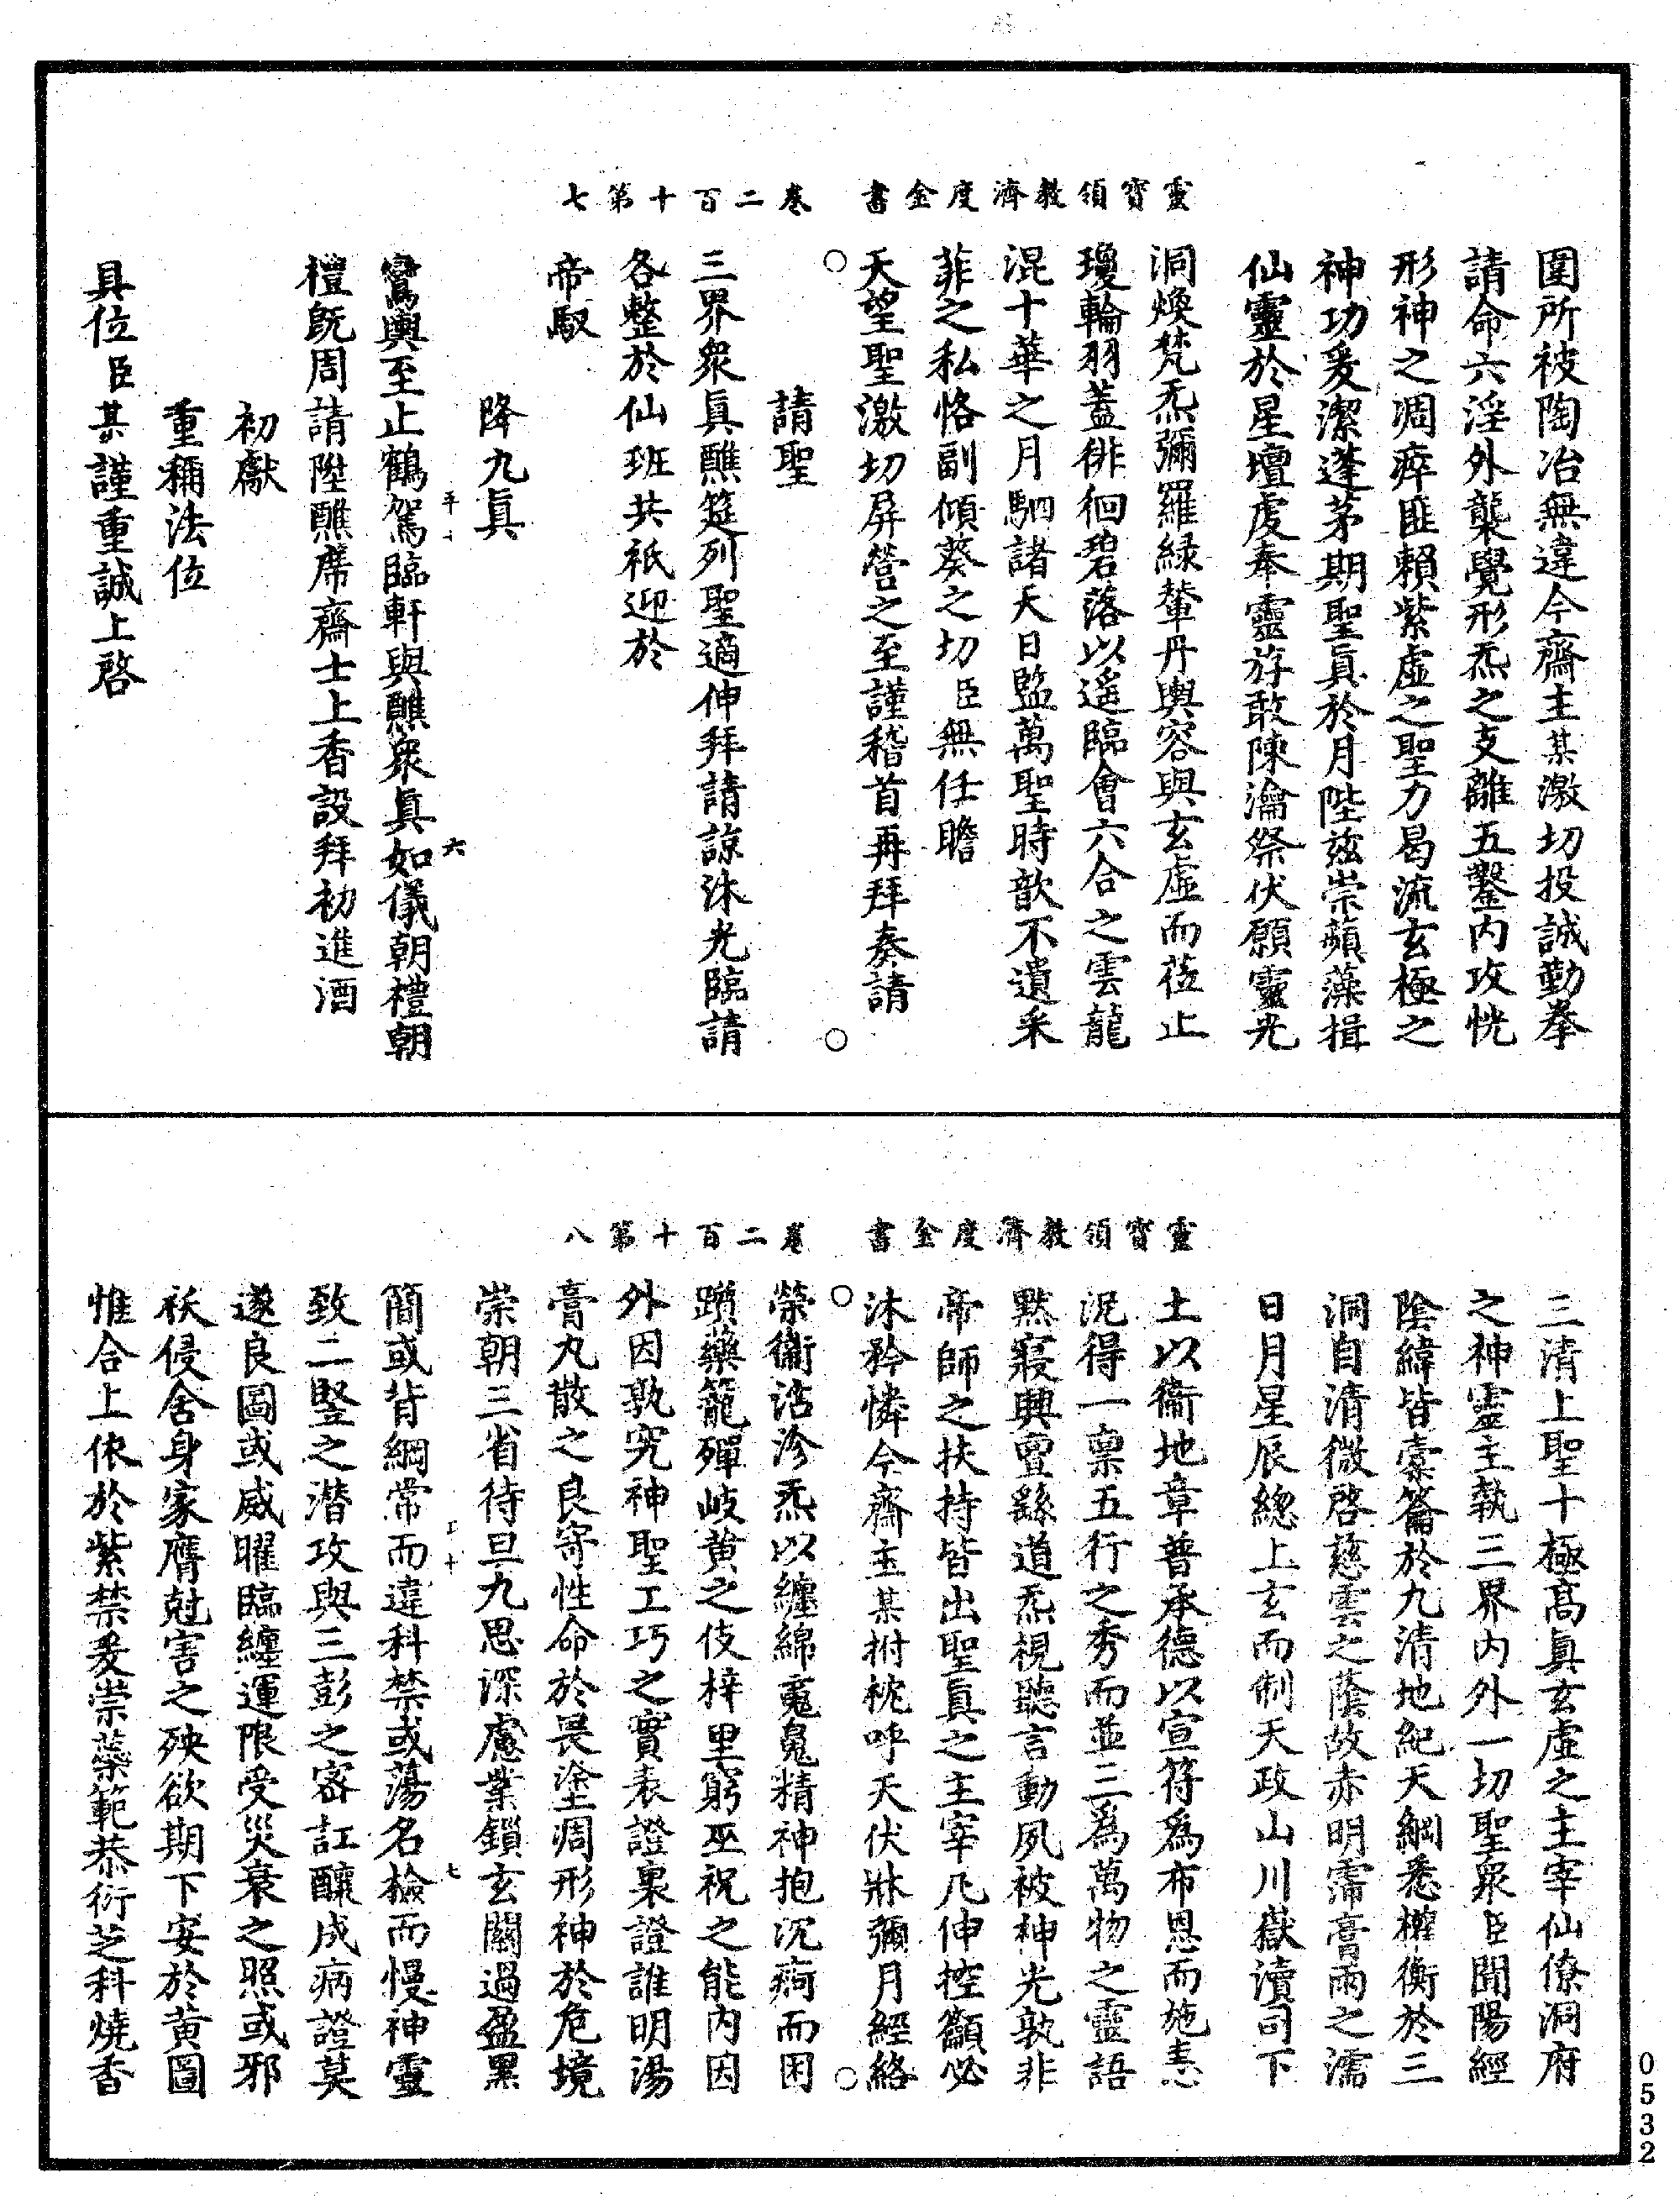 靈寶領教濟度金書 卷二百十第七
圍所被陶冶無違今齋主某激切投誠勤拳
請命六淫外襲覺形炁之支離五鑿內攻恍
形神之凋瘁匪賴紫虛之聖力曷流玄極之
神功爰潔蓬茅期聖眞於月陛茲崇蘋藻揖
仙靈於星壇虔奉靈斿敢陳瀹祭伏願靈光
洞煥梵炁彌羅綠輦丹輿容與玄虛而蒞止
瓊輪羽蓋徘徊碧落以遥臨會六合之雲龍
混十華之月駟諸天日監萬聖時歆不遺采
菲之私恪副傾葵之切臣無任瞻
天望聖激切屏營之至謹稽首再拜奏請
請聖
三界衆眞醮筵列聖適伸拜請諒沐光臨請
各整於仙班共祇迎於
帝馭
降九眞
鸞輿至止鶴駕臨軒與醮衆眞如儀朝禮朝
禮旣周請陞醮席齋士上香設拜初進酒
初獻
重稱法位
具位臣某謹重誠上啓
六
靈寶領教濟度金書 卷二百十第八
三清上聖十極高眞玄虛之主宰仙僚洞府
之神靈主執三界內外一切聖衆臣聞陽經
陰緯皆橐籥於九清地紀天綱悉權衡於三
洞自清微啓慈雲之蔭故赤明霈膏雨之濡
日月星辰總上玄而制天政山川嶽瀆司下
土以衞地章普承德以宣符爲布恩而施恵
況得一稟五行之秀而並三爲萬物之靈語
默寢興亶繇道炁視聽言動夙被神光孰非
帝師之扶持皆出聖眞之主宰凡伸控籲必
沐矜憐今齋主某拊枕呼天伏牀彌月經絡
榮衞沾沴炁以纏綿䰟魄精神抱沉痾而困
躓藥籠殫岐黃之伎梓里窮巫祝之能內因
外因孰究神聖工巧之實表證裏證誰明湯
膏丸散之良寄性命於畏塗凋形神於危境
崇朝三省待旦九思深慮業鎖玄關過盈黑
簡或背綱常而違科禁或蕩名檢而慢神靈
致二豎之潛攻與三彭之密訌釀成病證莫
遂良圖或威曜臨纏運限受災衰之照或邪
祅侵舍身家膺尅害之殃欲期下安於黃圖
惟合上俫於紫禁爰崇蘂範恭衍芝科燒香
七
0532